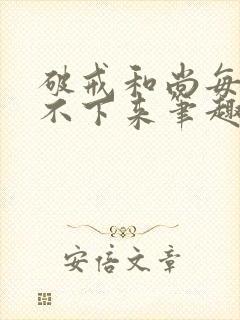 破戒和尚每
不下来笔趣
安倍文章